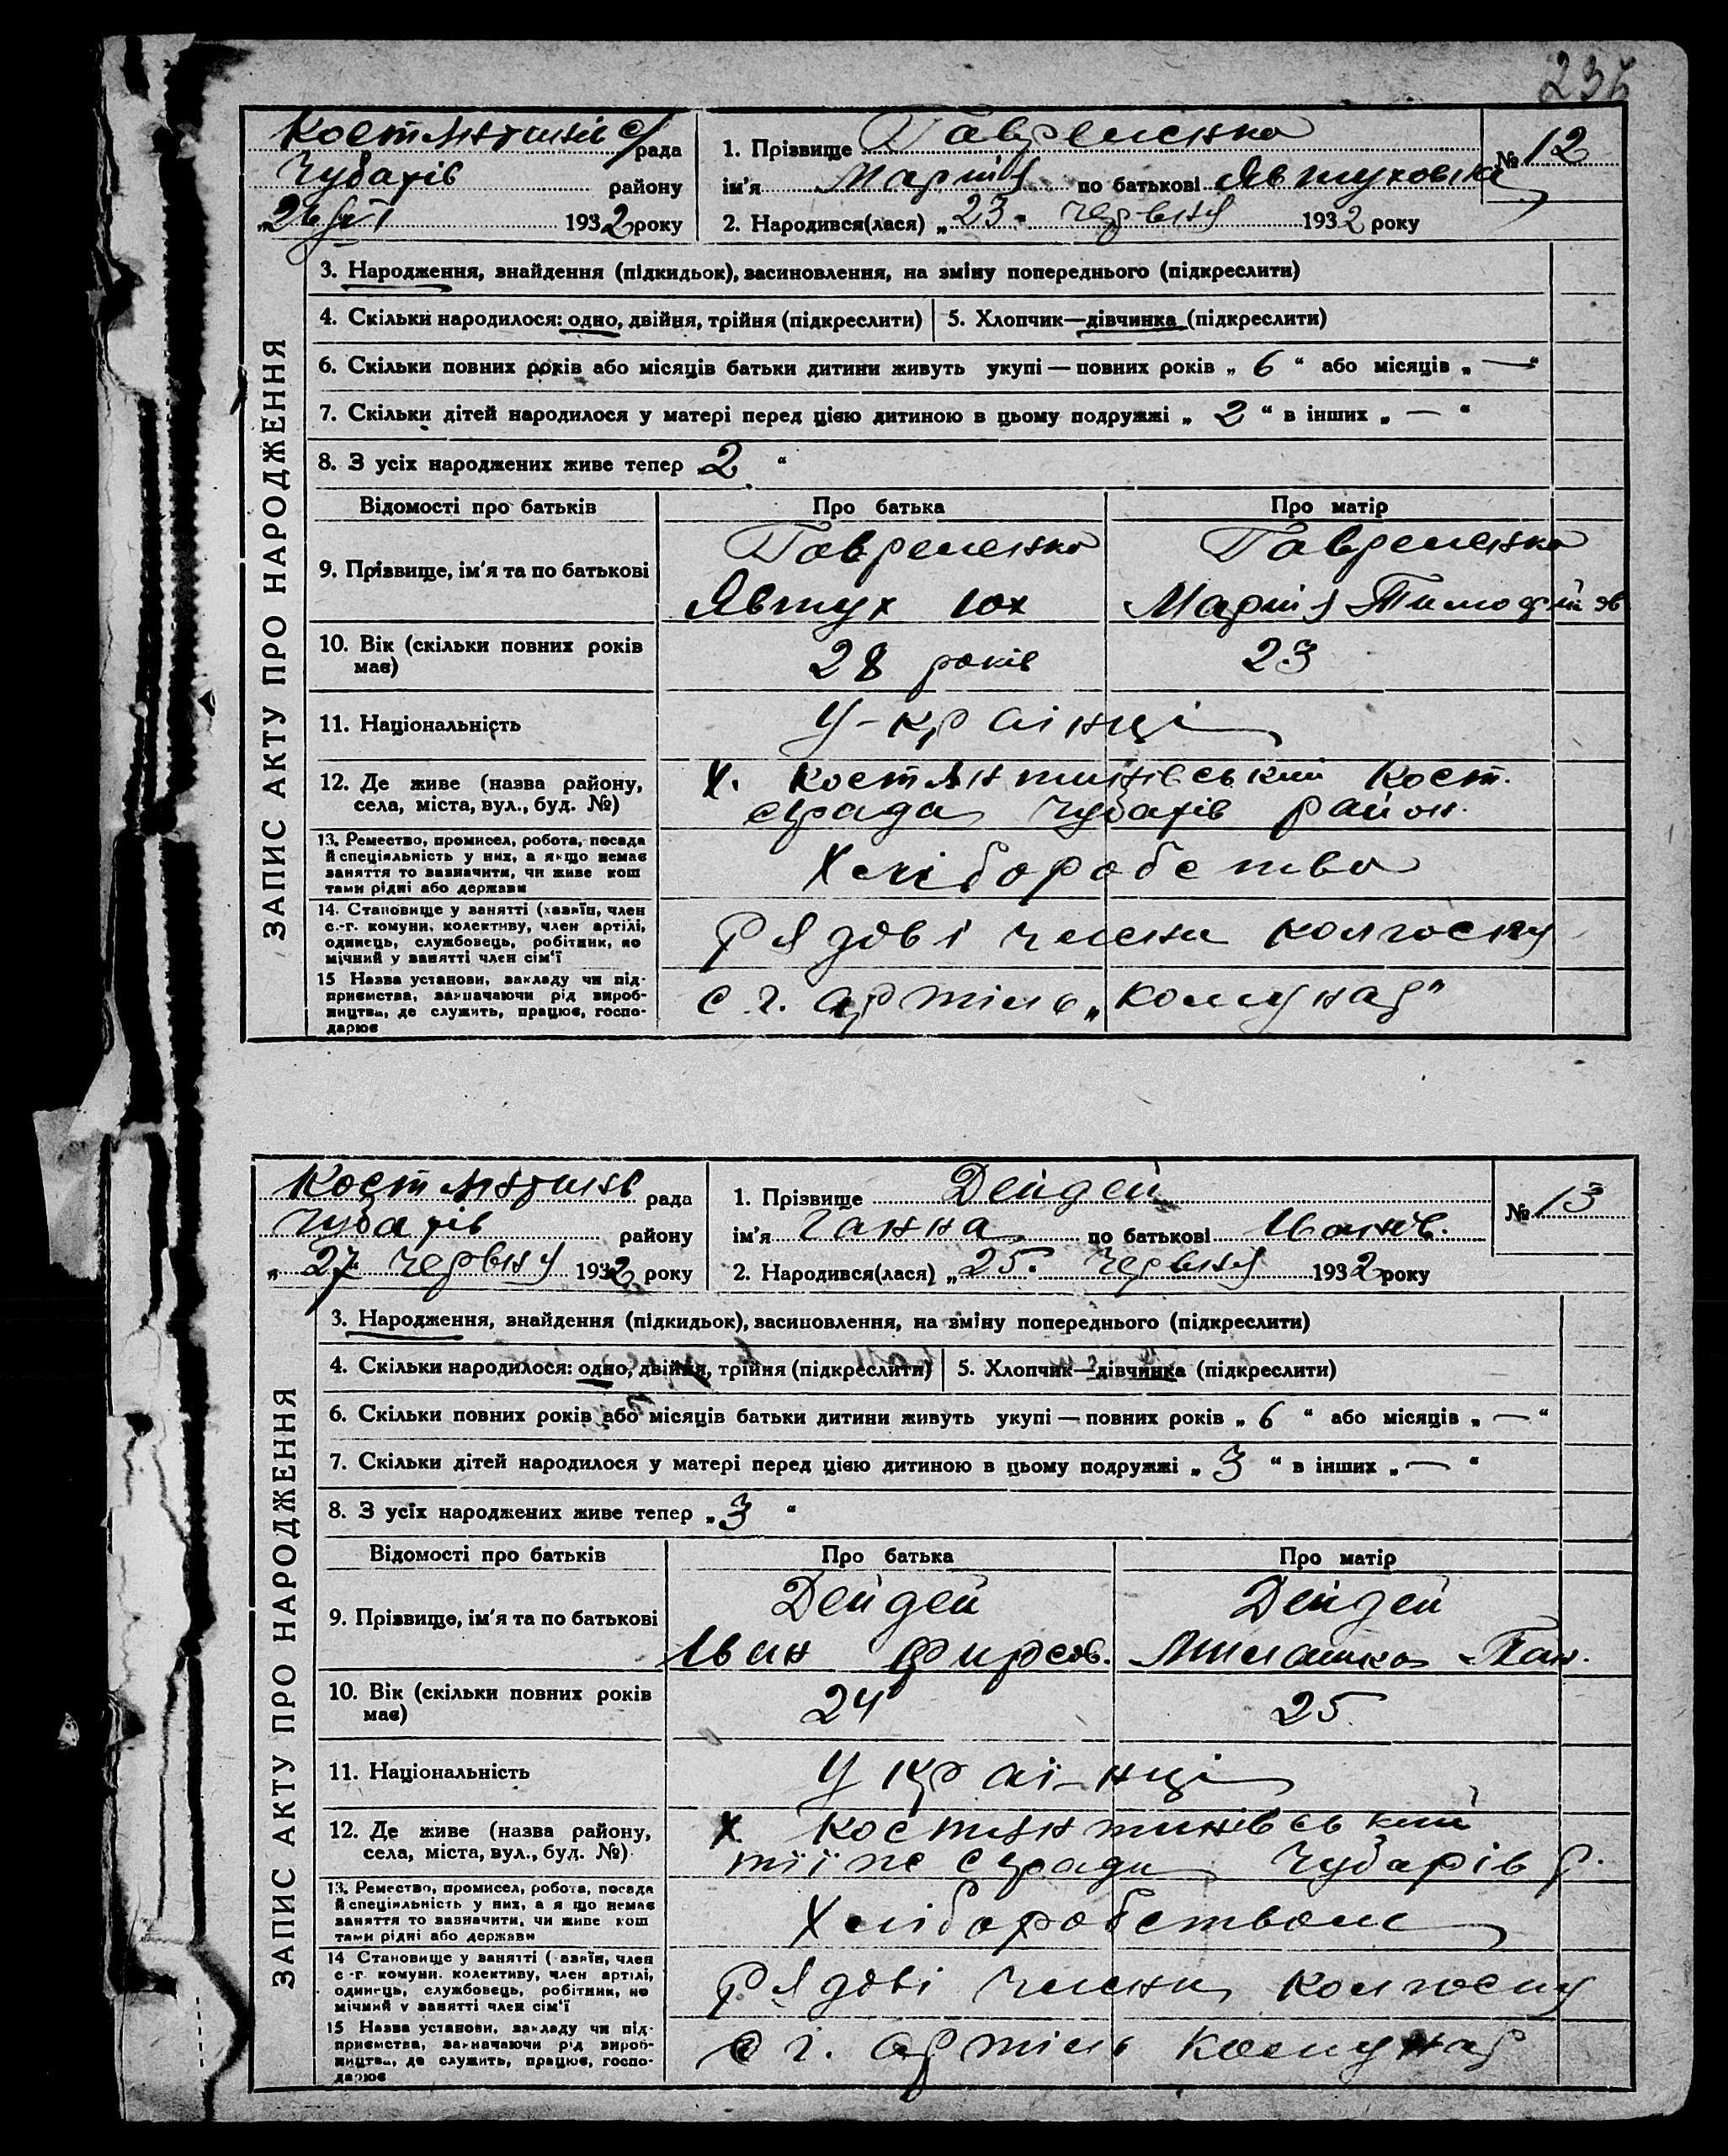 236
ЗАПИС АКТУ ПРО НАРОДЖЕННЯ
Костянтинів с/рада
Чубарів району
„26/VI 1932 року
1. Прізвище Гавреленко
ім'я Марія по батькові Явтуховна
№ 12
2. Народився(лася) „23" червня 1932 року
3. Народження, знайдення (підкидьок), засиновлення, на зміну попереднього (підкреслити)
4. Скільки народилося: одно, двійня, трійня (підкреслити) 5. Хлопчик—дівчинка (підкреслити)
6. Скільки повних років або місяців батьки дитини живуть укупі — повних років „ 6 “ або місяців „ — “
7. Скільки дітей народилося у матері перед цією дитиною в цьому подружжі „ 2 “ в інших „ — “
8. З усіх народжених живе тепер „2 “
Відомості про батьків Про батька Про матір
9. Прізвище, ім'я та по батькові
Гавреленко Гавреленко
Явтух Юх Марія Тимофійов
10. Вік (скільки повних років має)
28 років 23
11. Національність
У-країнці
12. Де живе (назва району,
села, міста, вул., буд. №)
Х. Костянтинівський Кост.
с/рада Чубарів район.
13. Ремество, промисел, робота, посада
й спеціяльність у них, а якщо немає
заняття то зазначити, чи живе кош
тами рідні або держави
Хліборобство
14. Становище у занятті (хазяїн, член
с.-г. комуни, колективу, член артілі,
одинець, службовець, робітник, по
мічний у занятті член сім'ї
Рядові члени колгоспу
15 Назва установи, закладу чи під-
приємства, зазначаючи рід вироб-
ництва, де служить, працює, госпо-
дарює
с г. артіль „Комунар"
ЗАПИС АКТУ ПРО НАРОДЖЕННЯ
Костянтинів рада
Чубарів району
„ 27 червня 1932 року
1. Прізвище Дейдей
ім'я Ганна по батькові Іванов.
№ 13
2. Народився(лася) „25. червня 1932 року
3. Народження, знайдення (підкидьок), засиновлення, на зміну попереднього (підкреслити)
4. Скільки народилося: одно, двійня, трійня (підкреслити) 5. Хлопчик—дівчинка (підкреслити)
6. Скільки повних років або місяців батьки дитини живуть укупі — повних років „ 6 “ або місяців „ — “
7. Скільки дітей народилося у матері перед цією дитиною в цьому подружжі „ 3 “ в інших „ — “
8. З усіх народжених живе тепер „3 “
Відомості про батьків Про батька Про матір
9. Прізвище, ім'я та по батькові
Дейдей Дейдей
Іван Фирсов. Пан.
10. Вік (скільки повних років має)
24 25
11. Національність
Украі-нці
12. Де живе (назва району,
села, міста, вул., буд. №)
Х. Костянтинівський
тії пс с/ради Чубарів р.
13. Ремество, промисел, робота, посада
й спеціяльність у них, а я що немає
заняття то зазначити, чи живе кош
тами рідні або держави
Хліборобством
14 Становище у занятті ( азяїн, член
с -г. комуни. колективу, член артілі,
одинець, службовець, робітник, по
мічний у занятті член сім'ї
Рядові члени колгоспу
15 Назва установи, закладу чи під-
приємства, зазначаючи рід вироб-
ництва, де служить, працює, госпо-
дарює
с г. артіль Комунар